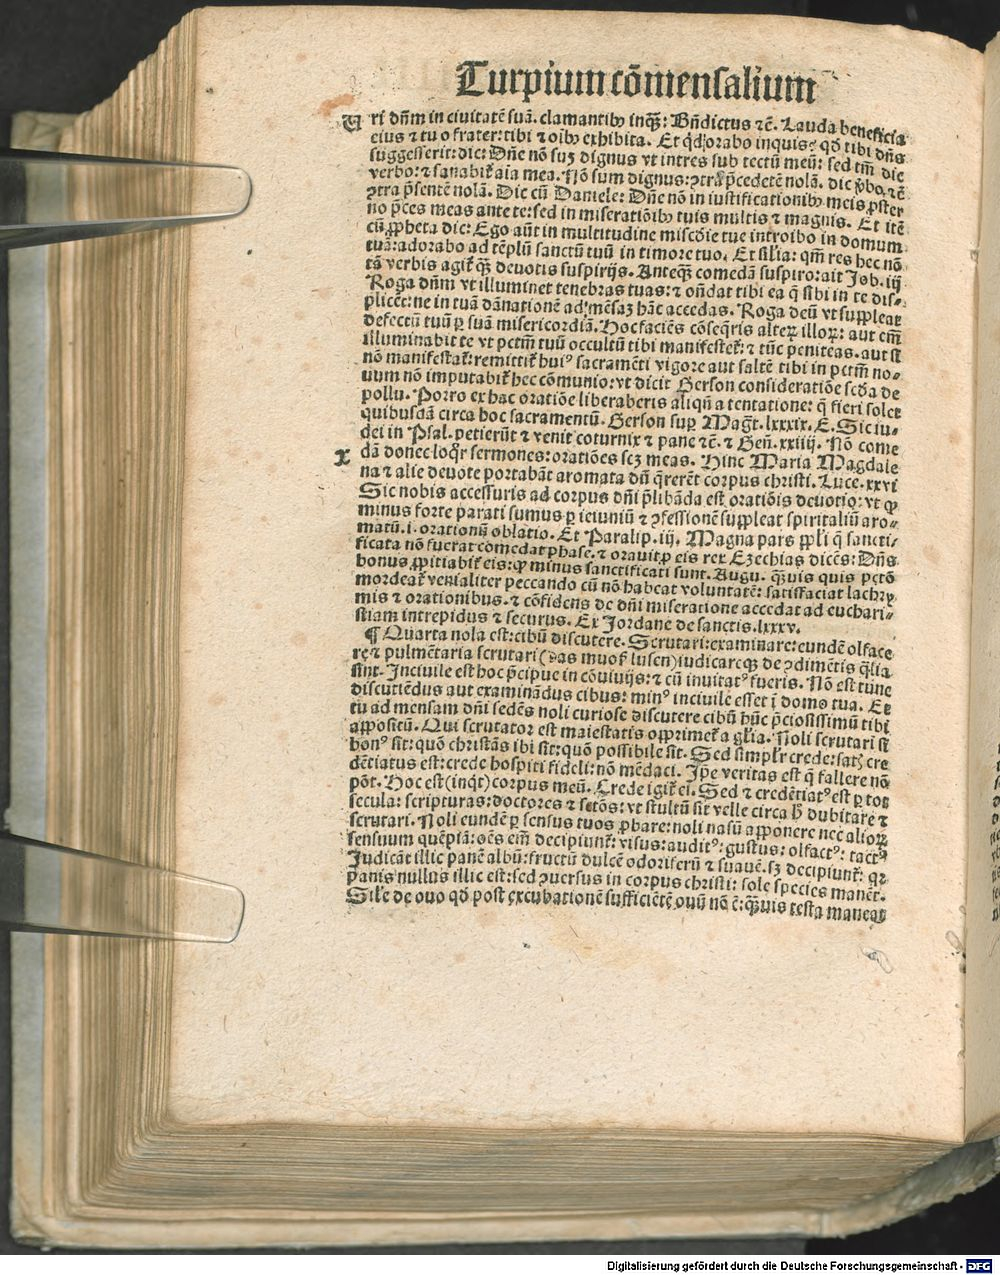 Turpium cōmensalium
V ri dñm in ciuitatē suā. clamantibꝰ inqꝫ: Bñdictus ⁊c̄. Lauda beneficia
eius ⁊ tu o frater: tibi ⁊ oībꝰ exhibita. Et qd orabo inquis? qd tibi dñs
suggesserit: dic: Dñe nō suꝫ dignus vt intres sub tectū meū: sed tm̄ dic
verbo: ⁊ sanabiť aīa mea. Nō sum dignus: ꝯtra p̄cedetē nolā. dic v̄bo, ⁊c̄
ꝯtra p̄sentē nolā. Dic cū Daniele: Dñe nō in iustificationibꝰ meis ꝓster
no p̄ces meas ante te: sed in miseratiōibꝰ tuis multis ⁊ magnis. Et itē
cū ꝓpheta dic: Ego aūt in multitudine miscđie tue introibo in domum
tuā: adorabo ad tēplū sanctū tuū in timore tuo. Et sil'ia: qm̄ res hec nō
tā verbis agiť qꝫ deuotis suspirijs. Anteqꝫ comedā suspiro: ait Job. iij
Roga dñm vt illuminet tenebras tuas: ⁊ oñdat tibi ea q̄ sibi in te dis⸗
plicēt: ne in tuā dānationē ad mēsaꝫ hāc accedas. Roga deū vt suppleat
defectū tuū ꝑ suā misericordiā. Hoc faciēs cōseqris alteꝝ illoꝝ: aut em̄
illuminabit te vt pctm̄ tuū occultū tibi manifesteť: ⁊ tūc peniteas. aut si
nō manifestať: remittiť huiꝰ sacramēti vigore aut saltē tibi in pctm̄ no⸗
uum nō imputabiť hec cōmunio: vt dicit Gerson consideratiōe scđa de
pollu. Porro ex hac oratiōe liberaberis aliqñ a tentatione: q̄ fieri solet
quibusdā circa hoc sacramentū. Gerson suꝑ Mag̃t. lxxxix. E. Sic iu⸗
dei in Psal. petierūt ⁊ venit coturnix ⁊ pane ⁊c̄. ⁊ Geñ. xxiiij. Nō come
x dā donec loq̄r sermones: oratiōes scꝫ meas. Hinc Maria Magdale
na ⁊ alie deuote portabāt aromata dū q̄rerēt corpus christi. Luce. xxvi
Sic nobis accessuris ad corpus dñi p̄libāda est oratiōis deuotio: vt ꝙ
minus forte parati sumus ꝑ ieiuniū ⁊ ꝯfessionē suppleat spiritaliū aro⸗
matū. i. orationū oblatio. Et Paralip. iij. Magna pars ppl'i q̄ sancti⸗
ficata nō fuerat comedat phase. ⁊ orauit ꝓ eis rex Ezechias dicēs: Dñs
bonus ꝓpitiabiť eis: ꝙ minus sanctificati sunt. Augu. qꝫuis quis pctō
mordeať venialiter peccando cū nō habeat voluntatē: satisfaciat lachry
mis ⁊ orationibus. ⁊ cōfidens de dñi miseratione accedat ad euchari⸗
stiam intrepidus ⁊ securus. Ex Jordane de sanctis. lxxxv.
¶ Quarta nola est: cibū discutere. Scrutari: examinare: eundē olface
re ⁊ pulmētaria scrutari (das muoß lusen) iudicareqꝫ de ꝯdimētis q̄lia
sint. Inciuile est hoc p̄cipue in cōuiuijs: ⁊ cū inuitatꝰ fueris. Nō est tunc
discutiēdus aut examinādus cibus: minꝰ inciuile esset ī domo tua. Et
tu ad mensam dñi sedēs noli curiose discutere cibū hūc p̄ciosissimū tibi
appositū. Qui scrutator est maiestatis opprimeť a gl'ia. Noli scrutari si
bonꝰ sit: quō christꝰ ibi sit: quō possibile sit. Sed simplr̄ crede: satꝭ cre
dētiatus est: crede hospiti fideli: nō mēdaci. Ipse veritas est q̄ fallere nō
pōt. Hoc est (inqt) corpus meū. Crede igiť ei. Sed ⁊ credētiatꝰ est ꝑ tot
secula: scripturas: doctores ⁊ sctōs: vt stultū sit velle circa hͦ dubitare ⁊
scrutari. Noli eundē ꝑ sensus tuos ꝓbare: noli nasū apponere nec alioꝝ
sensuum quēpiā: oēs em̄ decipiunť: visus: auditꝰ: gustus: olfactꝰ: tactꝰ
Judicāt illic panē albū: fructū dulcē odoriferū ⁊ suauē. sꝫ decipiunť: qꝛ
panis nullus illic est: sed ꝯuersus in corpus christi: sole species manēt.
Sil'e de ouo qd post excubationē sufficiētē ouū nō ē: qꝫuis testa maneat
Digitalisierung gefördert durch die Deutsche Forschungsgemeinschaft - DFG